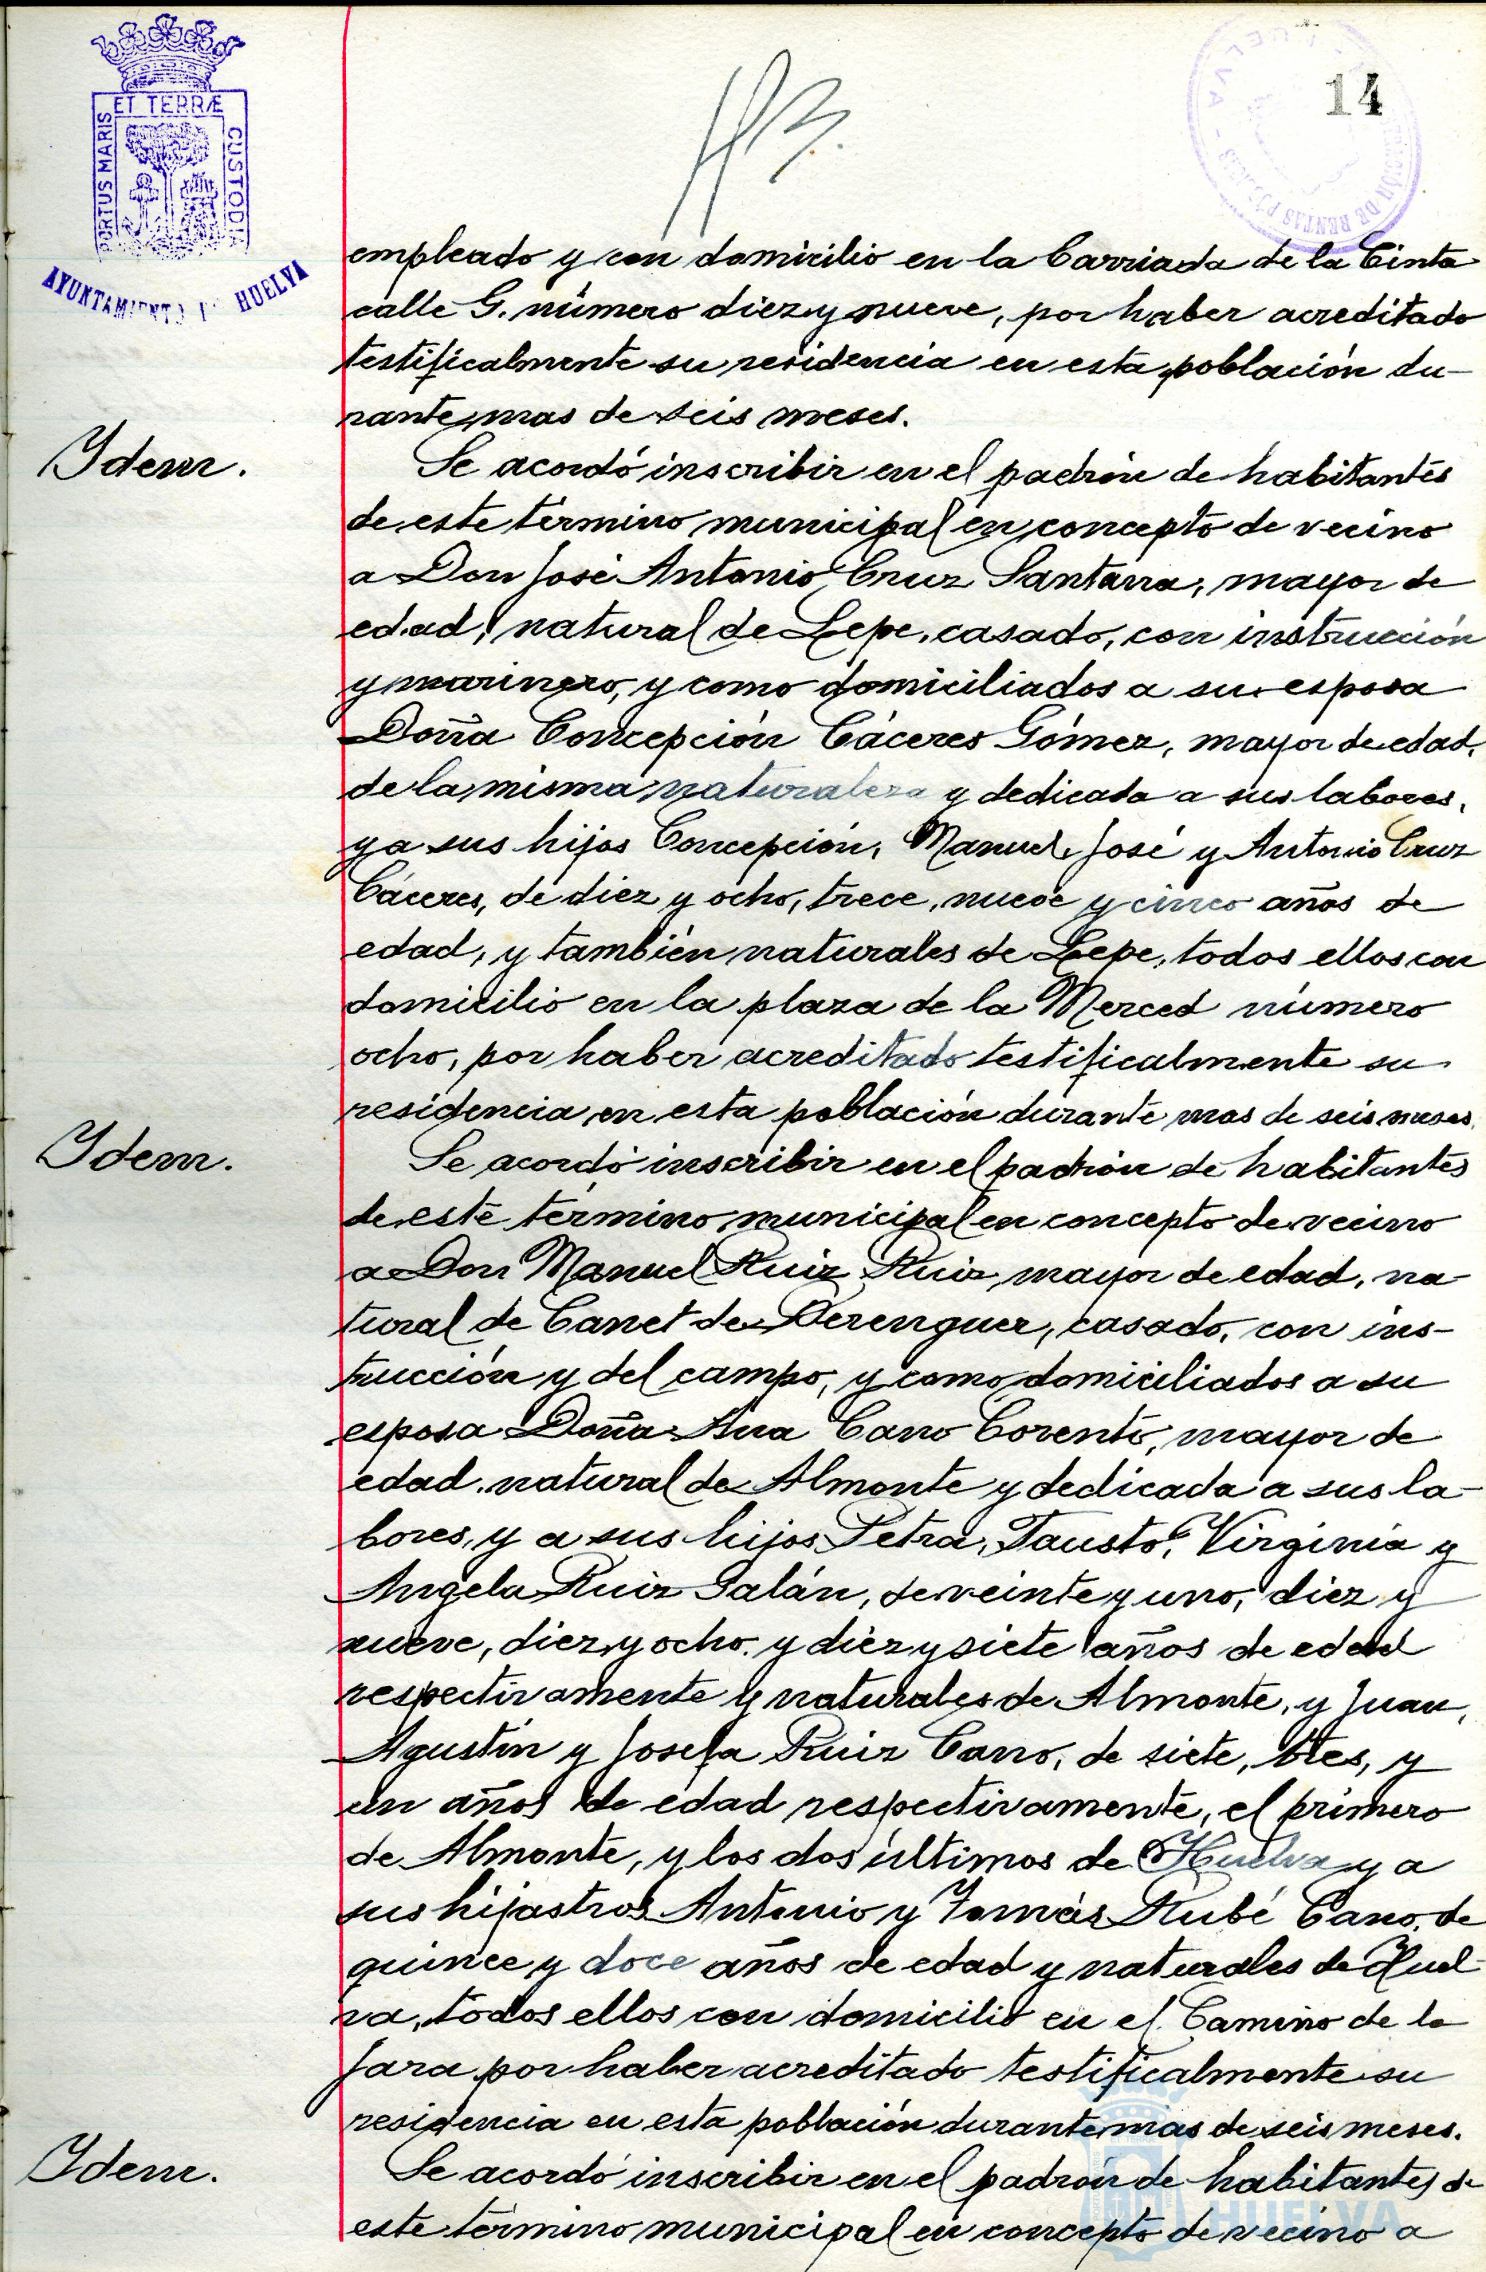 14
ET TERRÆ
PORTUS MARIS
CUSTODIA
AYUNTAMIENTO DE HUELVA
empleado y con domicilio en la barriada de la Cinta
calle G. número diez y nueve, por haber acreditado
testificalmente su residencia en esta población du-
rante mas de seis meses.
Ydem.
Se acordó inscribir en el padrón de habitantes
de este término municipal en concepto de vecino
a Don José Antonio Cruz Santana, mayor de
edad, natural de Lepe, casado, con instrucción
y marinero, y como domiciliados a su esposa
Doña Concepción Cáceres Gómez, mayor de edad,
de la misma naturaleza y dedicada a sus labores,
y a sus hijos Concepción, Manuel, José y Antonio Cruz
Cáceres, de diez y ocho, trece, nueve y cinco años de
edad, y también naturales de Lepe, todos ellos con
domicilio en la plaza de la Merced número
ocho, por haber acreditado testificalmente su
residencia en esta población durante mas de seis meses.
Ydem.
Se acordó inscribir en el padrón de habitantes
de este término municipal en concepto de vecino
a Don Manuel Ruiz Ruiz, mayor de edad, na-
tural de Canet de Berenguer, casado, con ins-
trucción y del campo, y como domiciliados a su
esposa Doña Ana Cano mayor de
edad, natural de Almonte y dedicada a sus la-
bores, y a sus hijos Petra, Fausto, Virginia y
Angela Ruiz Galán, de veinte y uno, diez y
nueve, diez y ocho y diez y siete años de edad
respectivamente y naturales de Almonte, y Juan,
Agustín y Josefa Ruiz Cano, de siete, tres, y
un años de edad respectivamente, el primero
de Almonte, y los dos últimos de Huelva y a
sus hijastros Antonio y Tomás Rubé Cano, de
quince y doce años de edad y naturales de Huel-
va, todos ellos con domicilio en el Camino de la
Jara por haber acreditado testificalmente su
residencia en esta población durante mas de seis meses.
Ydem.
Se acordó inscribir en el padrón de habitantes de
este término municipal en concepto de vecino a
HUELVA